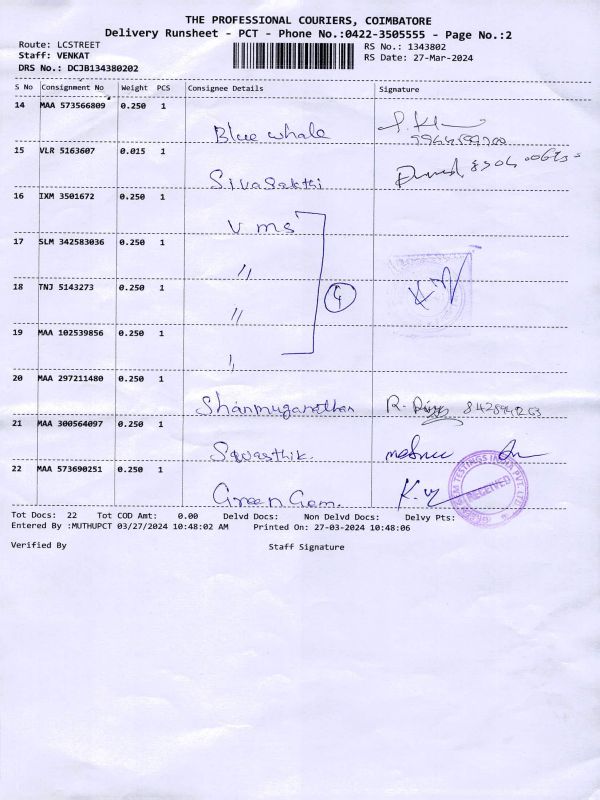 THE PROFESSIONAL COURIERS, COIMBATORE
Delivery Runsheet - PCT - Phone No.:0422-3505555 - Page No.:2
Route: LCSTREET
RS No.: 1343802
Staff: VENKAT
RS Date: 27-Mar-2024
DRS No.: DCJB134380202
S No Consignment No Weight PCS Consignee Details Signature
14 MAA 573566809 0.250 1
Blue whale
15 VLR 5163607 0.015 1
Sivasakthi
16 IXM 3501672 0.250 1
V ms
17 SLM 342583036 0.250 1
"
18 TNJ 5143273 0.250 1
"
4
19 MAA 102539856 0.250 1
"
20 MAA 297211480 0.250 1
Shanmuganathan R.
21 MAA 300564097 0.250 1
Swasthik.
22 MAA 573690251 0.250 1
Green Gem.
RECEIVED
Tot Docs: 22 Tot COD Amt: 0.00 Delvd Docs: Non Delvd Docs: Delvy Pts:
Entered By :MUTHUPCT 03/27/2024 10:48:02 AM Printed On: 27-03-2024 10:48:06
Verified By Staff Signature